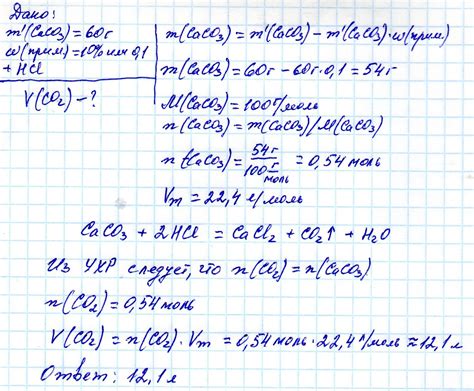 Дано:
m'(CaCO₃) = 60г
ω(прим) = 10% или 0,1
+ HCl
V(CO₂) - ?
m(CaCO₃) = m'(CaCO₃) - m'(CaCO₃)·ω(прим)
m(CaCO₃) = 60г - 60г·0,1 = 54г
M(CaCO₃) = 100г/моль
n(CaCO₃) = m(CaCO₃)/M(CaCO₃)
n(CaCO₃) = 54г / 100 г/моль = 0,54 моль
Vm = 22,4 л/моль
CaCO₃ + 2HCl = CaCl₂ + CO₂↑ + H₂O
Из УХР следует, что n(CO₂) = n(CaCO₃)
n(CO₂) = 0,54 моль
V(CO₂) = n(CO₂)·Vm = 0,54 моль·22,4 л/моль ≈ 12,1 л
Ответ: 12,1 л